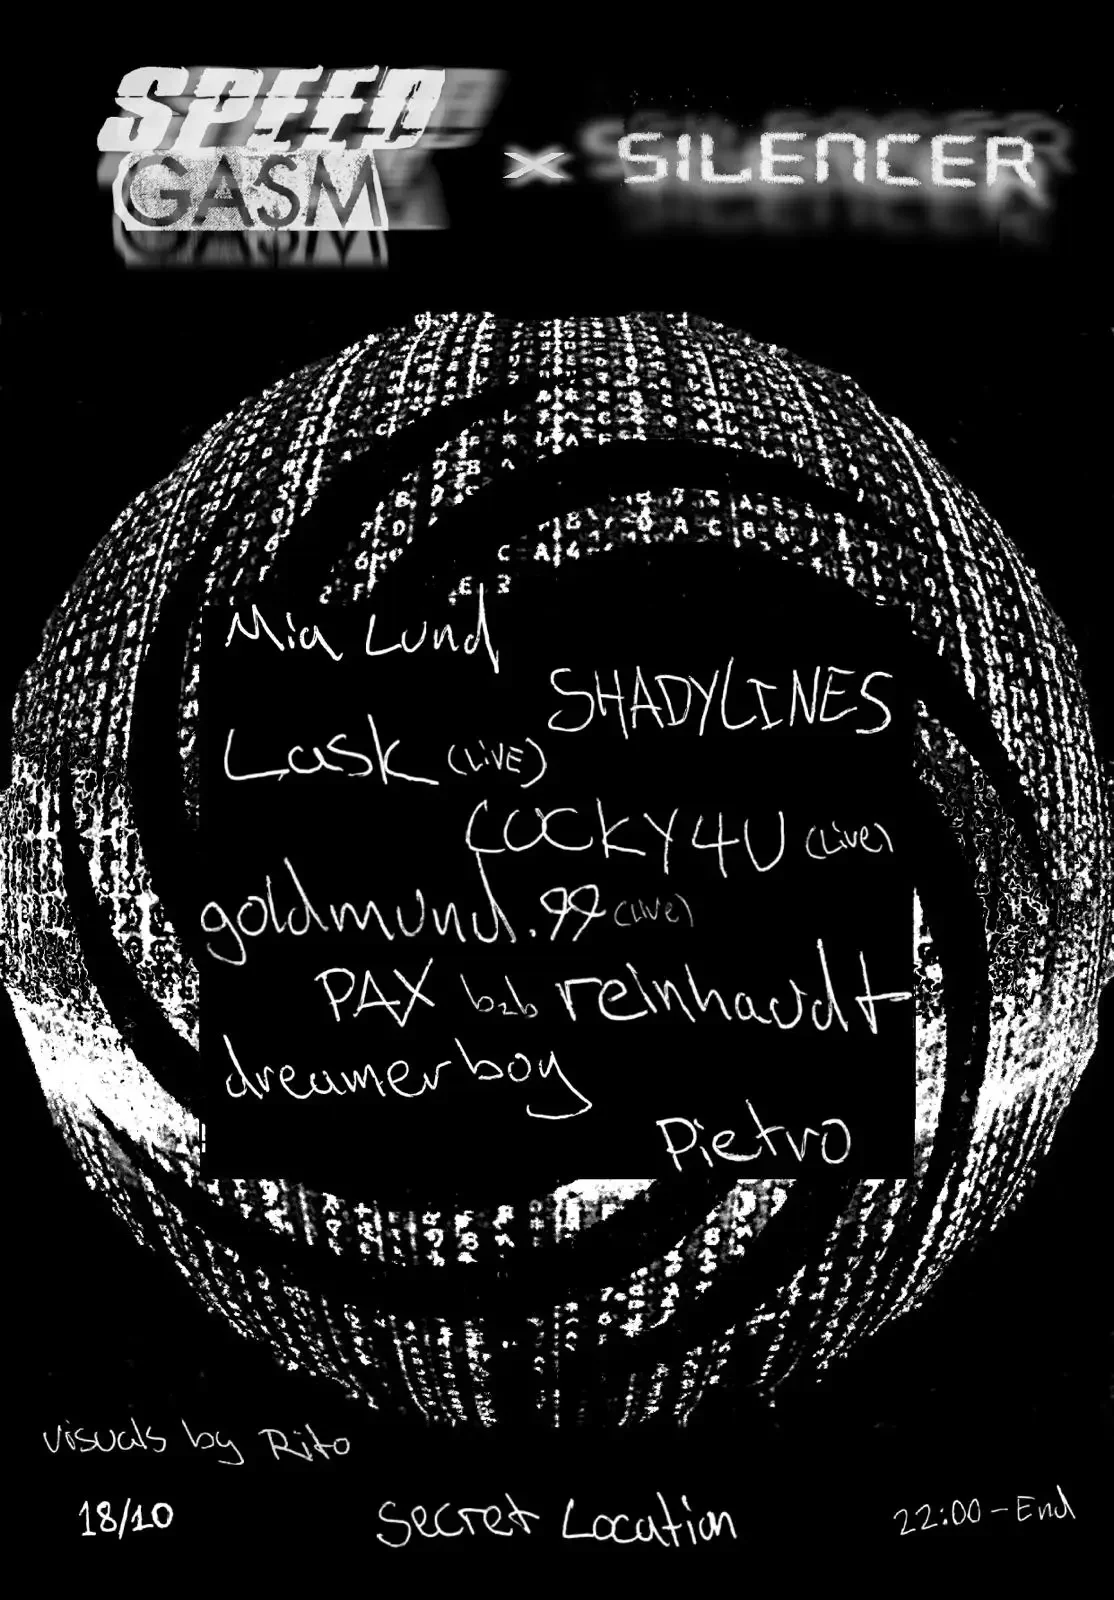 SPEED
GASM
x SILENCER
Mia Lund
SHADYLINES
Lask (LIVE)
COCKY4U (Live)
goldmund.99 (Live)
PAX b2b reinhardt
dreamerboy
Pietro
visuals by Rito
18/10
Secret Location
22:00 - End